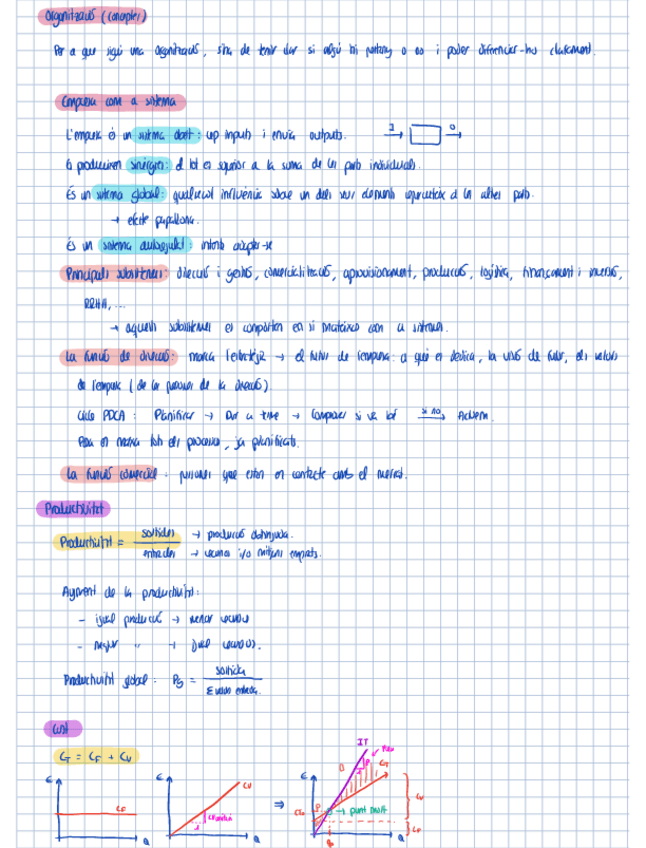 Organització (concepte)
Per a que sigui una organització, s'ha de tenir clar si algú hi pertany o no i poder diferenciar-ho clarament.
Empresa com a sistema
L'empresa és un sistema obert: rep inputs i envia outputs. I O
Es produeixen sinèrgies: el tot és superior a la suma de les parts individuals.
És un sistema global: qualsevol influència sobre un dels seus elements repercuteix a les altres parts.
→ efecte papallona.
És un sistema autoregulat: intenta adaptar-se
Principals subsistemes: direcció i gestió, comercialització, aprovisionament, producció, logística, finançament i inversió,
RRHH, ...
→ aquests subsistemes es comporten en si mateixos com a sistemes.
La funció de direcció: marca l'estratègia → el futur de l'empresa: a què es dedica, la visió de futur, els valors
de l'empresa (de les persones de la direcció).
Cicle PDCA: Planificar → Dur a terme → Comprovar si va bé si no → Actuem.
Posa en marxa tots els processos, ja planificats.
La funció comercial: persones que estan en contacte amb el mercat.
Productivitat
Productivitat = sortides → producció obtinguda.
entrades → recursos i/o mitjans emprats.
Augment de la productivitat:
- igual producció → menor recursos
- major " → igual recursos.
Productivitat global: Pg = sortida
Σ valor entrada.
Cost
CT = CF + CV
€ CF Q
€ CV 1 Q
⇒
€ IT B CT P punt mort CV CF Q